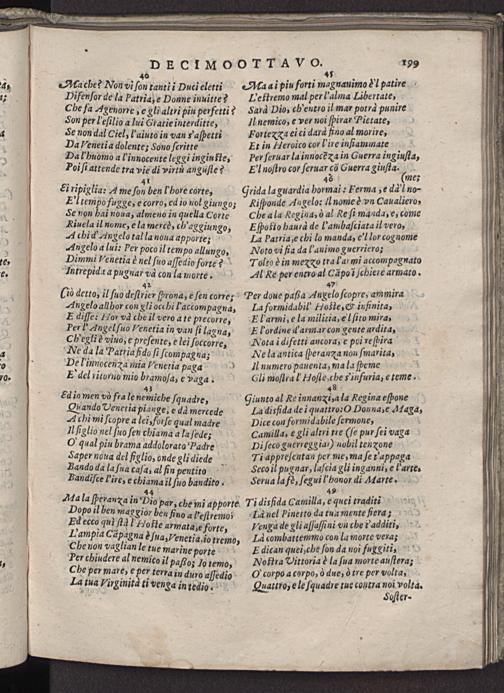 DECIMOOTTAVO. 199
40
Ma che? Non vi son tanti i Duci eletti
Difensor de la Patria, e Donne inuitte?
Che fa Agenorre, e gli altri più perfetti?
Son per l'esilio a lui Gratie interditte,
Se non dal Ciel, l'aiuto in van s'aspetti
Da Venetia dolente; Sono scritte
Da l'huomo a l'innocente leggi ingiuste,
Poi si attende tra vie di virtù anguste?
41
Ei ripiglia: A me son ben l'hore corte,
E'l tempo fugge, e corro, ed io nol giungo;
Se non hai noua, almeno in quella Corte
Riuela il nome, e la mercè, ch'aggiungo,
A chi d'Angelo tal la noua apporte;
Angelo a lui: Per poco il tempo allungo,
Dimmi Venetia è nel suo assedio forte?
Intrepida a pugnar và con la morte.
42
Ciò detto, il suo destrier sprona, e sen corre;
Angelo allhor con gli occhi l'accompagna,
E disse: Hor và che il vero a te precorre,
Per l'Angel suo Venetia in van si lagna,
Ch'egli è viuo, e presente, e lei soccorre,
Ne da la Patria fido si scompagna;
De l'innocenza mia Venetia paga
E' del ritorno mio bramosa, e vaga.
43
Ed io men vò fra le nemiche squadre,
Quando Venetia piange, e dà mercede
A chi mi scopre a lei, forse qual madre
Il figlio nel suo sen chiama a la sede;
O' qual piu brama addolorato Padre
Saper noua del figlio, onde gli diede
Bando da la sua casa, al fin pentito
Bandisce l'ire, e chiama il suo bandito.
44
Ma la speranza in Dio par, che mi apporte
Dopo il ben maggior ben fino a l'estremo:
Ed ecco quì stà l'Hoste armata, e forte,
L'ampia Cāpagna è sua, Venetia, io tremo,
Che non vaglian le tue marine porte
Per chiudere al nemico il passo; Io temo,
Che per mare, e per terra in duro assedio
La tua Virginità ti venga in tedio.
45
Ma a i piu forti magnanimo è'l patire
L'estremo mal per l'alma Libertate,
Sarà Dio, ch'entro il mar potrà punire
Il nemico, e ver noi spirar Pietate,
Fortezza ei ci darà fino al morire,
Et in Heroico cor l'ire infiammate
Per seruar la innocēza in Guerra ingiusta,
E'l nostro cor seruar cō Guerra giusta.
46
(me;
Grida la guardia hormai: Ferma, e dà'l no-
Risponde Angelo: Il nome è vn Caualiero,
Che a la Regina, ò al Re si māda, e, come
Esposto haurà de l'ambasciata il vero,
La Patria, e chi lo manda, e'l lor cognome
Noto vi fia da l'animo guerriero;
Tolto è in mezzo tra l'armi accompagnato
Al Re per entro al Cāpo ī schiere armato.
47
Per doue passa Angelo scopre, ammira
La formidabil' Hoste, & infinita,
E l'armi, e la militia, e'l sito mira,
E l'ordine d'armar con gente ardita,
Nota i difetti ancora, e poi respira
Ne la antica speranza non smarita,
Il numero pauenta, ma la speme
Gli mostra l'Hoste, che s'infuria, e teme.
48
Giunto al Re innanzi, a la Regina espone
La disfida de i quattro: O Donna, e Maga,
Dice con formidabile sermone,
Camilla, e gli altri tre (se pur sei vaga
Di seco guerreggiar) nobil tenzone
Ti appresentan per me, ma se t'appaga
Seco il pugnar, lascia gli inganni, e l'arte,
Serua la fè, segui l'honor di Marte.
49
Ti disfida Camilla, e quei traditi
Là nel Pinetto da tua mente fiera;
Venga de gli assassini vn che s'additi,
Là combattemmo con la morte vera;
E dican quei, che son da noi fuggiti,
Nostra Vittoria è la sua morte austera;
O' corpo a corpo, ò due, ò tre per volta,
Quattro, e le squadre tue contra noi volta.
Soster-